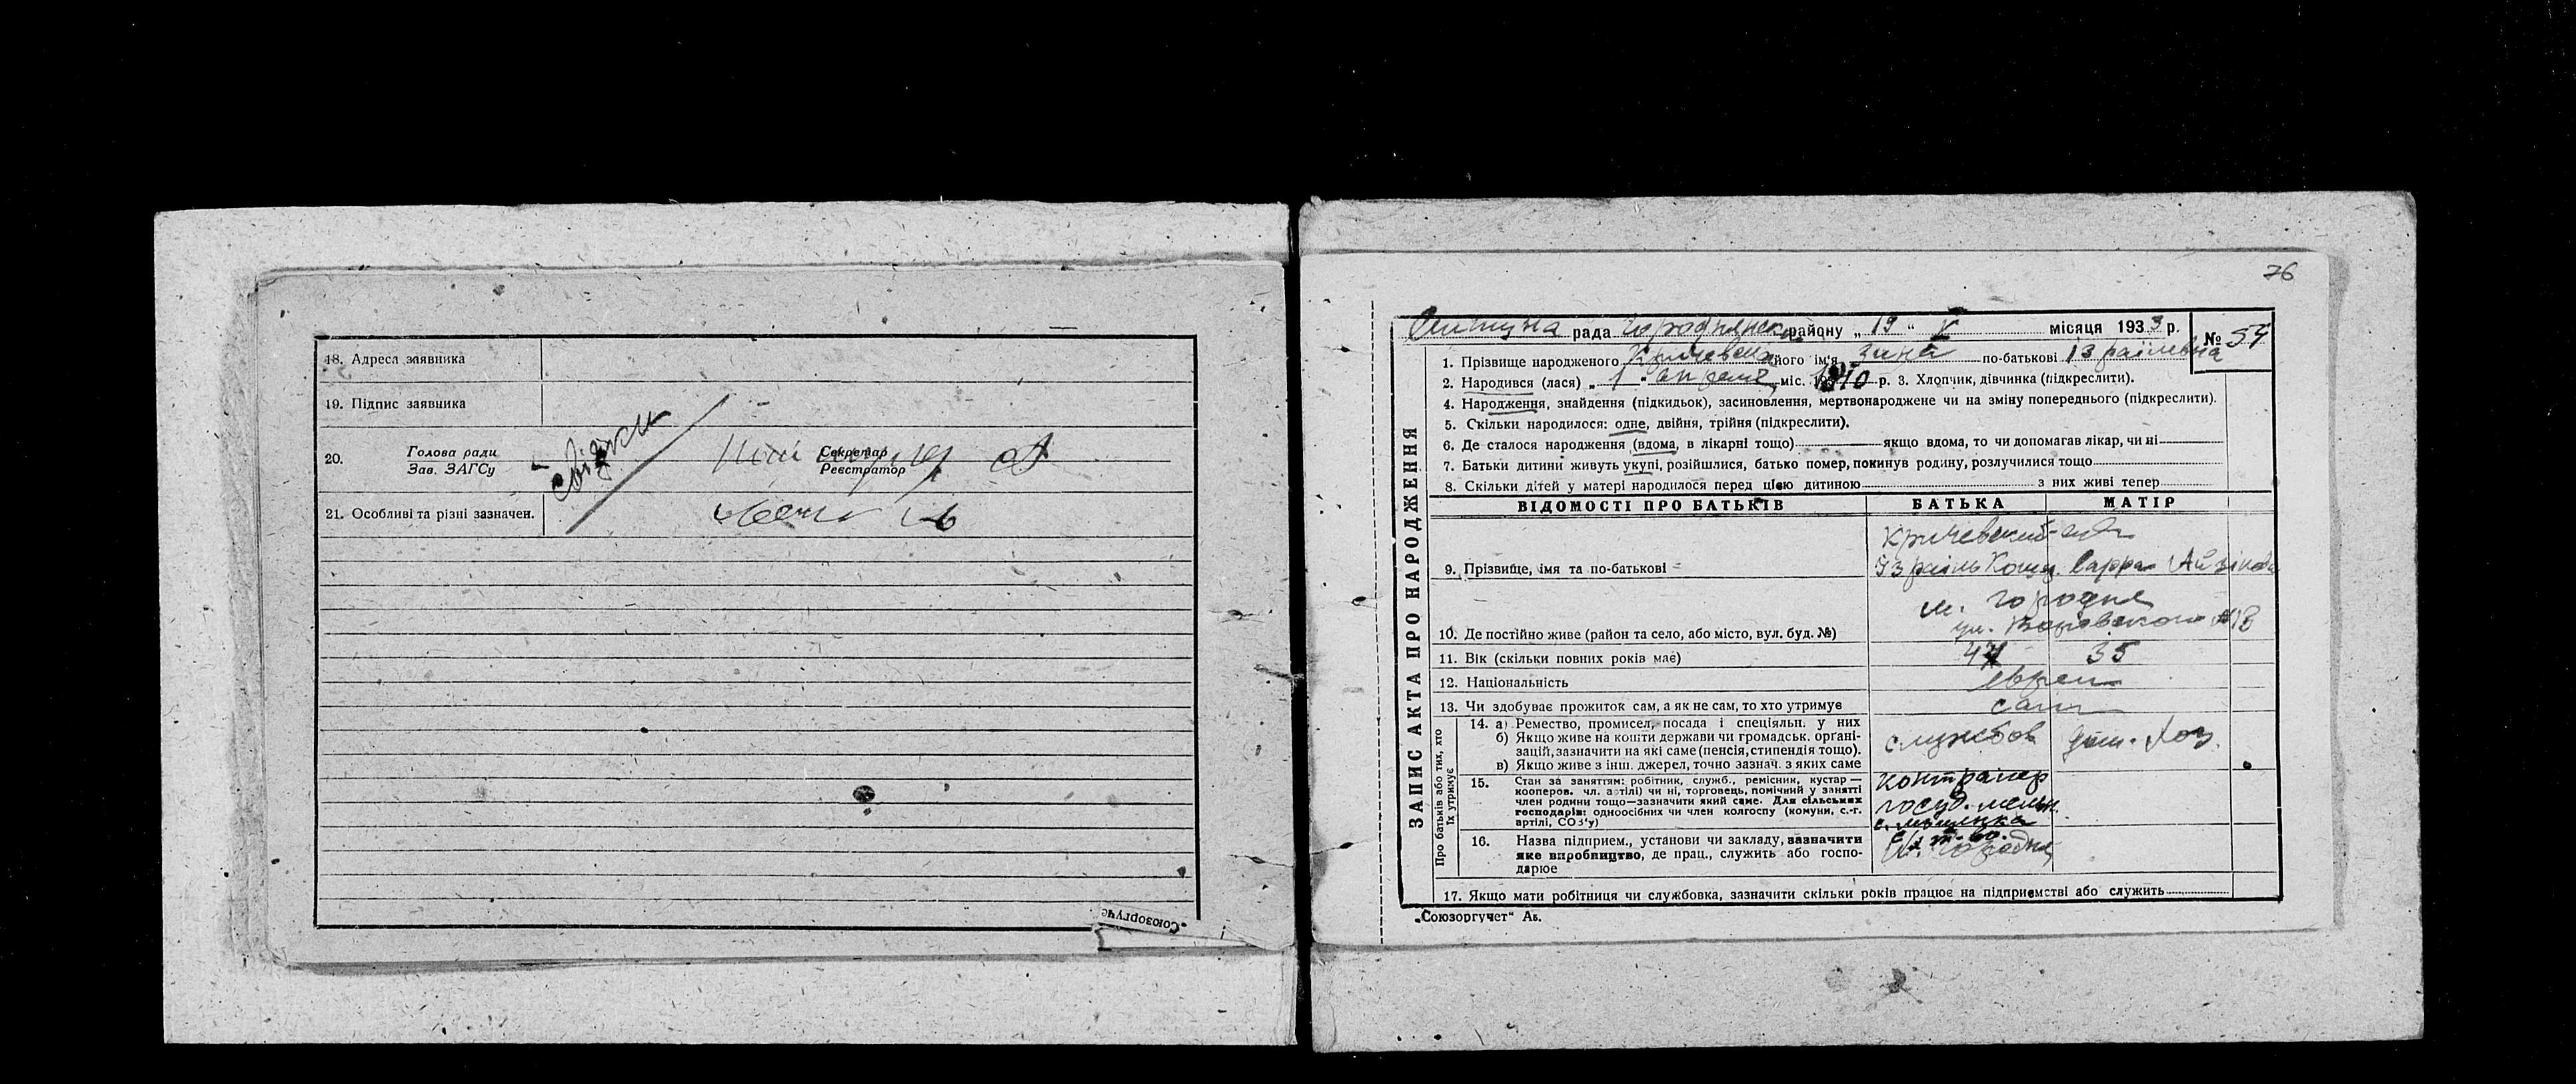 18. Адреса заявника
19. Підпис заявника
20. Голова ради
Зав. ЗАГСу
Секретар
Реєстратор
21. Особливі та різні зазначен.
„Союзоргуче
76
рада Городнянск району „19“ V місяця 1933 р.
№ 54
1. Прізвище народженого Кричевская його ім'я Зина по-батькові Ізраілевна
2. Народився (лася) „1“ апреля міс. 1910 р. 3. Хлопчик, дівчинка (підкреслити).
4. Народження, знайдення (підкидьок), засиновлення, мертвонароджене чи на зміну попереднього (підкреслити).
5. Скільки народилося: одне, двійня, трійня (підкреслити).
6. Де сталося народження (вдома, в лікарні тощо) якщо вдома, то чи допомагав лікар, чи ні
7. Батьки дитини живуть укупі, розійшлися, батько помер, покинув родину, розлучилися тощо
8. Скільки дітей у матері народилося перед цією дитиною з них живі тепер
ЗАПИС АКТА ПРО НАРОДЖЕННЯ
ВІДОМОСТІ ПРО БАТЬКІВ БАТЬКА МАТІР
Кричевский
9. Прізвище, імя та по-батькові Ізраіль Сарра Айзиков
м. Городня
10. Де постійно живе (район та село, або місто, вул. буд. №) ул. Воровского
11. Вік (скільки повних років має) 35
12. Національність евреи
13. Чи здобуває прожиток сам, а як не сам, то хто утримує сам
Про батьків або тих, хто їх утримує
14. а) Ремество, промисел, посада і спеціяльн. у них
б) Якщо живе на кошти держави чи громадськ. органі-
зацій, зазначити на які саме (пенсія, стипендія тощо).
в) Якщо живе з інш. джерел, точно зазнач. з яких саме
службов дом. хоз.
15. Стан за заняттям: робітник, служб., ремісник, кустар —
кооперов. чл. артілі) чи ні, торговець, помічний у занятті
член родини тощо—зазначити який саме. Для сільських
господарів: одноосібних чи член колгоспу (комуни, с.-г.
артілі, СОЗ'у)
госуд. мельн.
16. Назва підприєм., установи чи закладу, зазначити
яке виробництво, де прац., служить або госпо-
дарює
м. Городня
17. Якщо мати робітниця чи службовка, зазначити скільки років працює на підприємстві або служить
„Союзоргучет“ Аь.